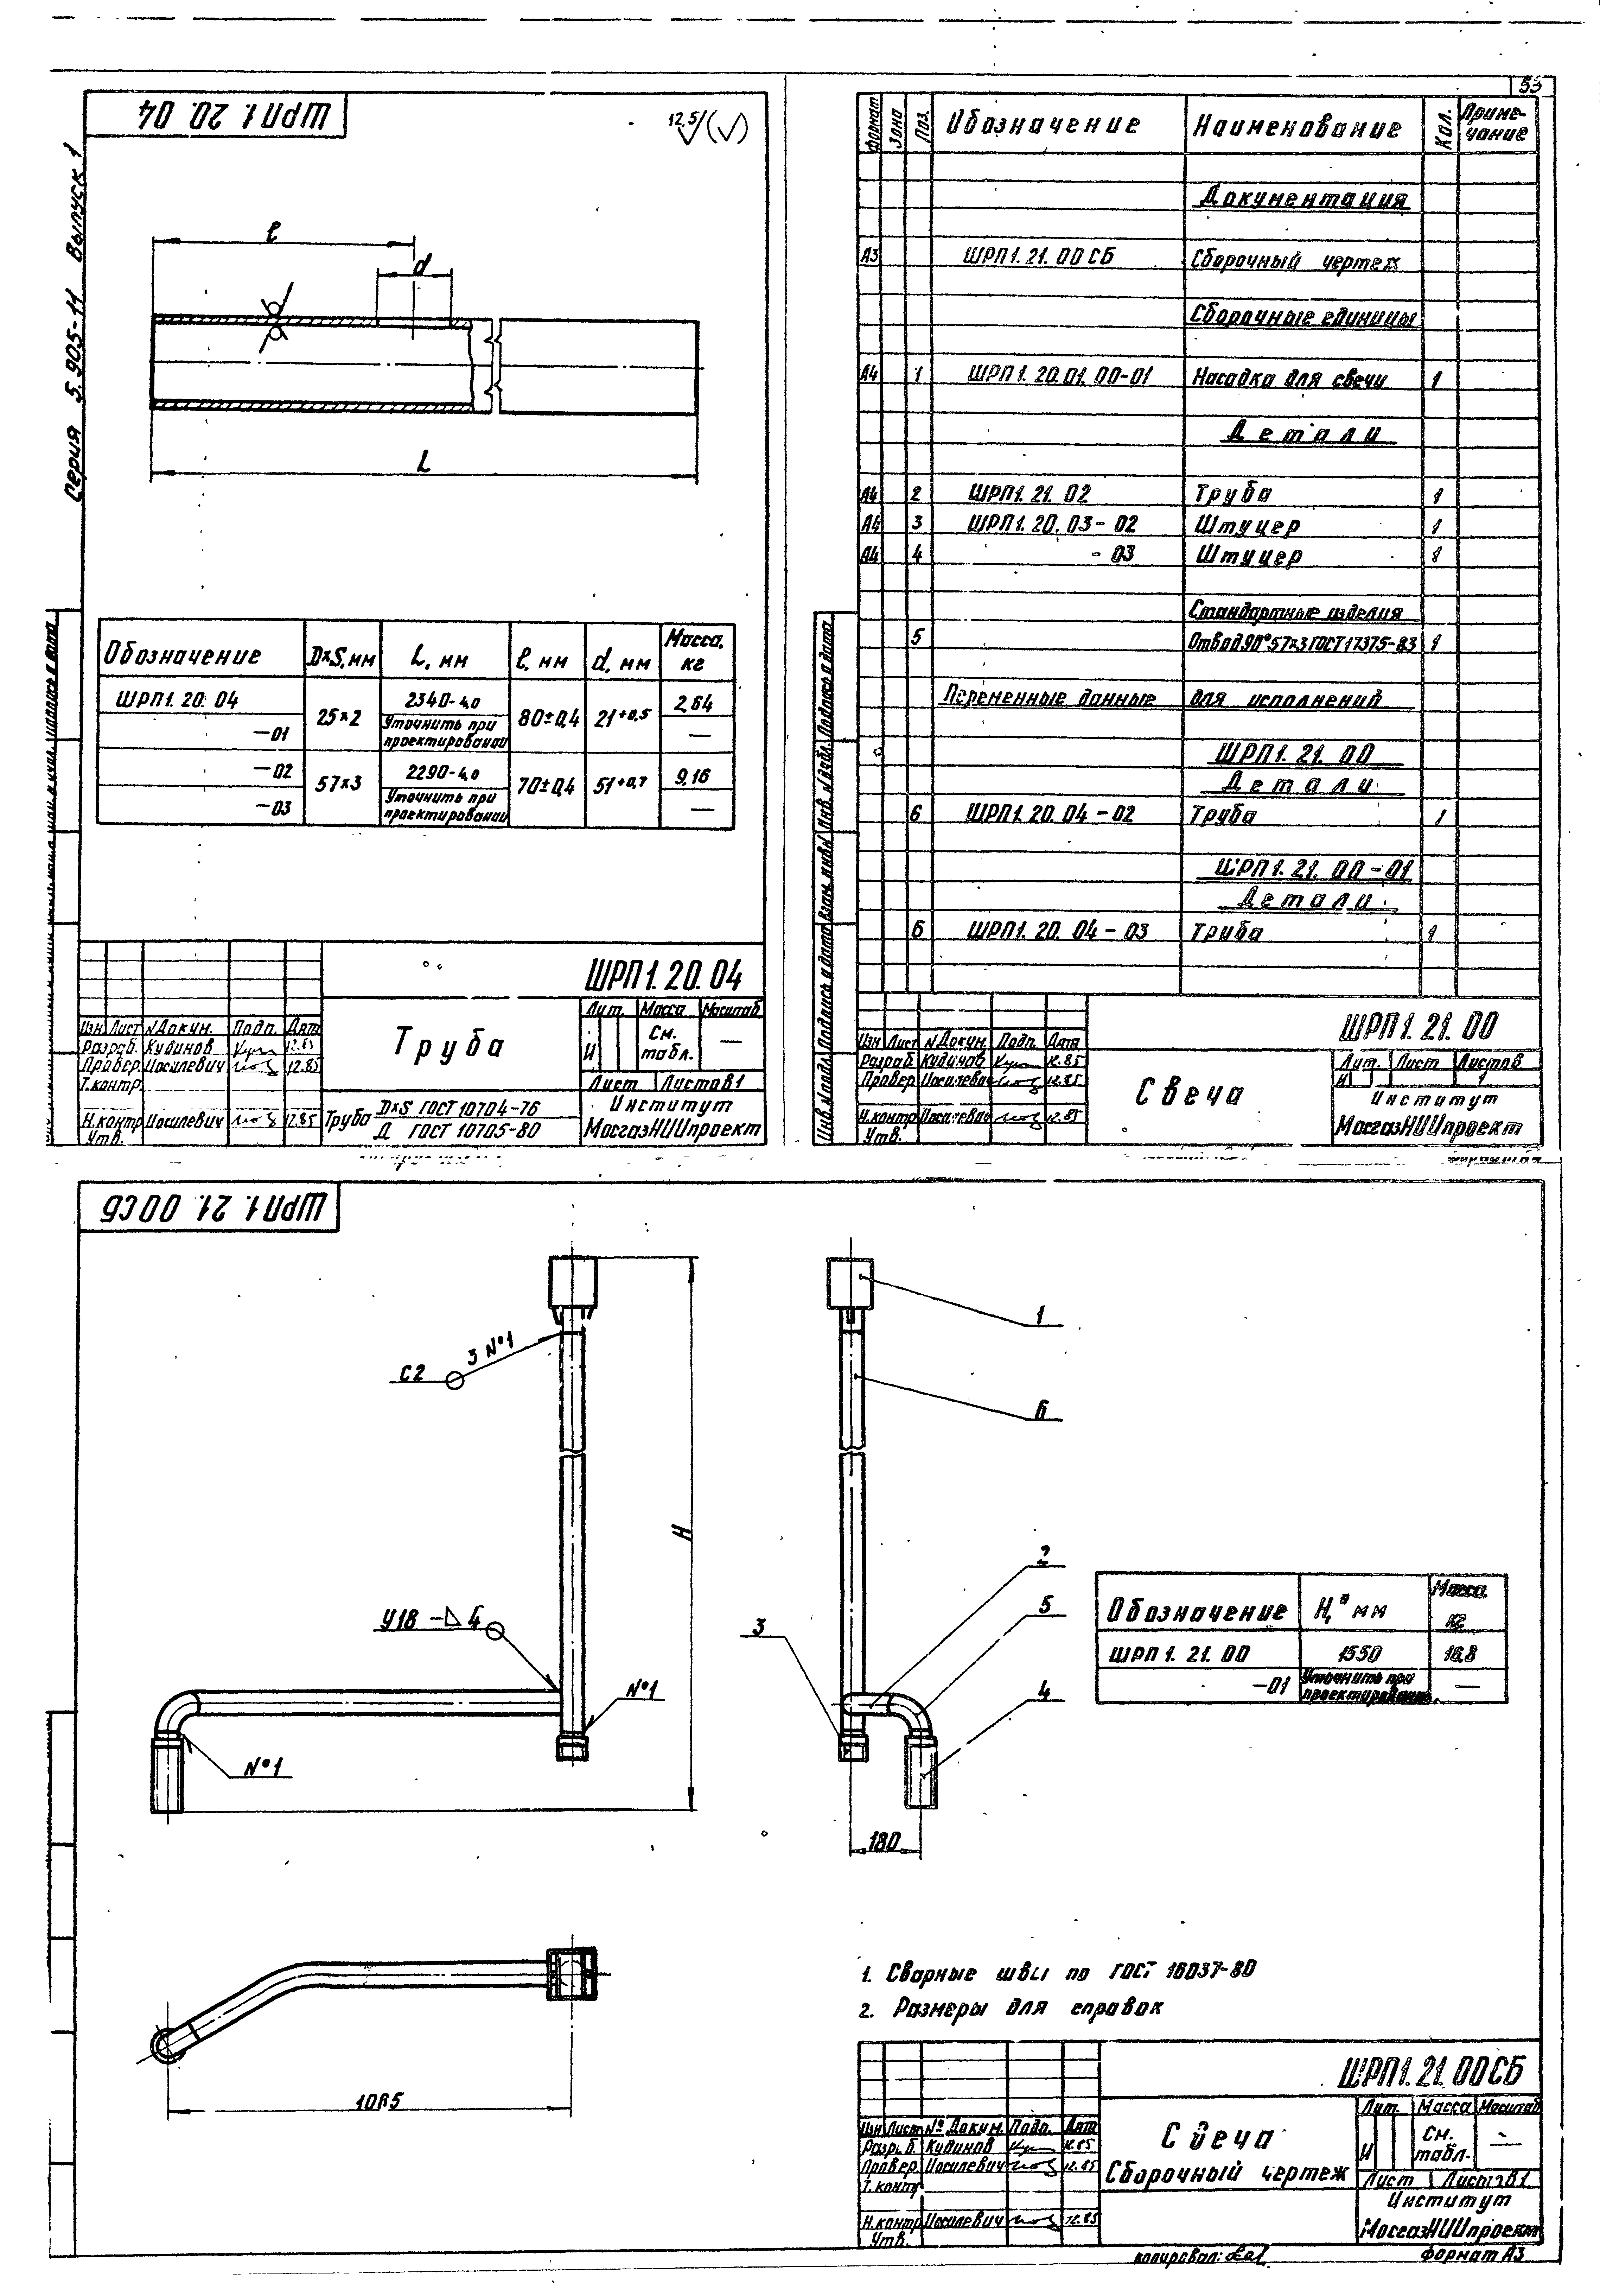 53
ШРП1. 20. 04
12,5
Серия 5.905-11 Выпуск 1
l
d
L
Обозначение D×S, мм L, мм l, мм d, мм Масса, кг
ШРП1. 20. 04 25×2 2340-4,0 80±0,4 21+0,5 2,64
-01 Уточнить при проектировании —
-02 57×3 2290-4,0 70±0,4 51+0,7 9,16
-03 Уточнить при проектировании —
ШРП1. 20. 04
Изм Лист № Докум. Подп. Дата
Разраб. Кудинов 12.85
Провер. Иосилевич 12.85
Т.контр.
Н.контр Иосилевич 12.85
Утв.
Труба
Лит. Масса Масштаб
И См. табл. —
Лист Листов 1
Труба D×S ГОСТ 10704-76
Д ГОСТ 10705-80
Институт
МосгазНИИпроект
Формат Зона Поз. Обозначение Наименование Кол. Приме-чание
Документация
А3 ШРП1. 21. 00 СБ Сборочный чертеж
Сборочные единицы
А4 1 ШРП1. 20.01. 00-01 Насадка для свечи 1
Детали
А4 2 ШРП1. 21. 02 Труба 1
А4 3 ШРП1. 20. 03-02 Штуцер 1
А4 4 -03 Штуцер 1
Стандартные изделия
5 Отвод 90° 57×3 ГОСТ 17375-83 1
Переменные данные для исполнений
ШРП1. 21. 00
Детали
6 ШРП1. 20. 04-02 Труба 1
ШРП1. 21. 00-01
Детали
6 ШРП1. 20. 04-03 Труба 1
Инв.№подл. Подпись и дата Взам. инв.№ Инв. № дубл. Подпись и дата
ШРП1. 21. 00
Изм Лист № Докум. Подп. Дата
Разраб. Кудинов 12.85
Провер. Иосилевич 12.85
Н.контр Иосилевич 12.85
Утв.
Свеча
Лит. Лист Листов
И 1
Институт
МосгазНИИпроект
ШРП1. 21. 00СБ
3 №1
С2
1
6
H
2
5
3
4
У18 -◺ 4
№1
№1
180
Обозначение H,* мм Масса кг
ШРП1. 21. 00 1550 16,8
-01 Уточнить при проектирован. —
1065
1. Сварные швы по ГОСТ 16037-80
2. Размеры для справок
ШРП1. 21. 00СБ
Изм Лист № Докум. Подп. Дата
Разраб. Кудинов 12.85
Провер. Иосилевич 12.85
Т.контр
Н.контр Иосилевич 12.85
Утв.
Свеча
Сборочный чертеж
Лит. Масса Масштаб
И См. табл. —
Лист Листов 1
Институт
МосгазНИИпроект
копировал:
формат А3